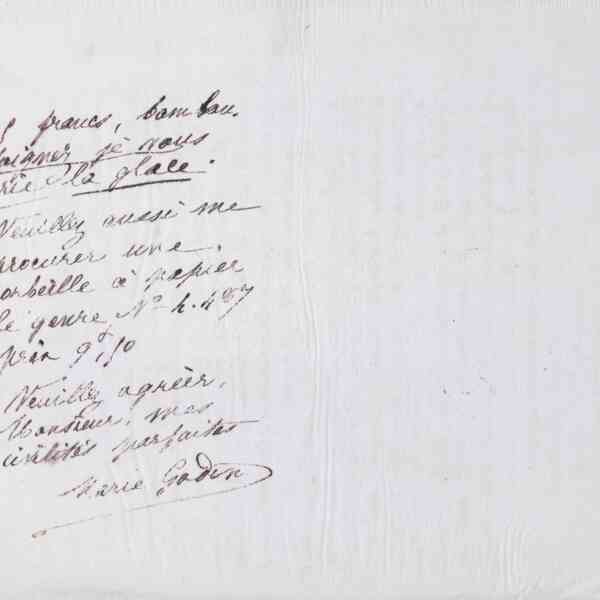 5 francs, bambou.
soigner je vous
prie la glace.
Veuillez aussi me
procurer une
corbeille à papier
le genre, N° 4.487
prix 9f,50
Veuillez agréer,
Monsieur, mes
civilités parfaites
Marie Godin